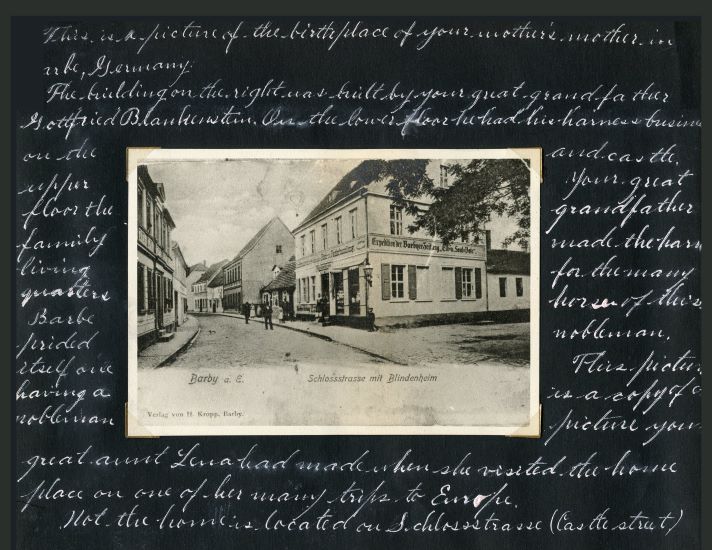 This is a picture of the birthplace of your mother's mother in
arbe, Germany.
The building on the right was built by your great grandfather
Gottfried Blankenstein. On the lower floor he had his harness busine
on the
upper
floor the
family
living
quarters
Barbe
prided
itself one
having a
nobleman
and castle.
Your great
grandfather
made the harn
for the many
horse of this
nobleman.
This pictur
is a copy of a
picture your
Expedition der Barbyer Zeitung
Barby a. E. Schlossstrasse mit Blindenheim
Verlag von H. Kropp, Barby.
great aunt Lena had made when she visited the home
place on one of her many trips to Europe.
Not the home is located on Schlossstrasse (Castle street)